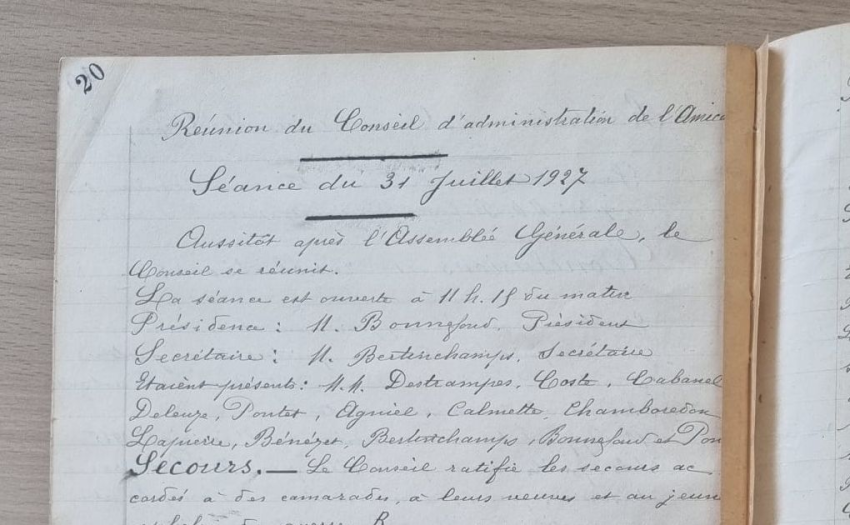 20
Réunion du Conseil d'administration de l'Amica
Séance du 31 Juillet 1927
Aussitôt après l'Assemblée Générale, le
Conseil se réunit.
La séance est ouverte à 11 h. 15 du matin
Présidence : M. Bonnefoud. Président
Secrétaire : M. Bertinchamps, Secrétaire
Etaient présents : M.M. Destrampes, Coste, Cabanel
Deleuze, Pontet, Agniel, Calmette, Chamboredon
Bénézet, Bertinchamps, Bonnefoud et Pon
Secours. — Le Conseil ratifie les secours ac
cordés à des camarades, à leurs veuves et au jeune